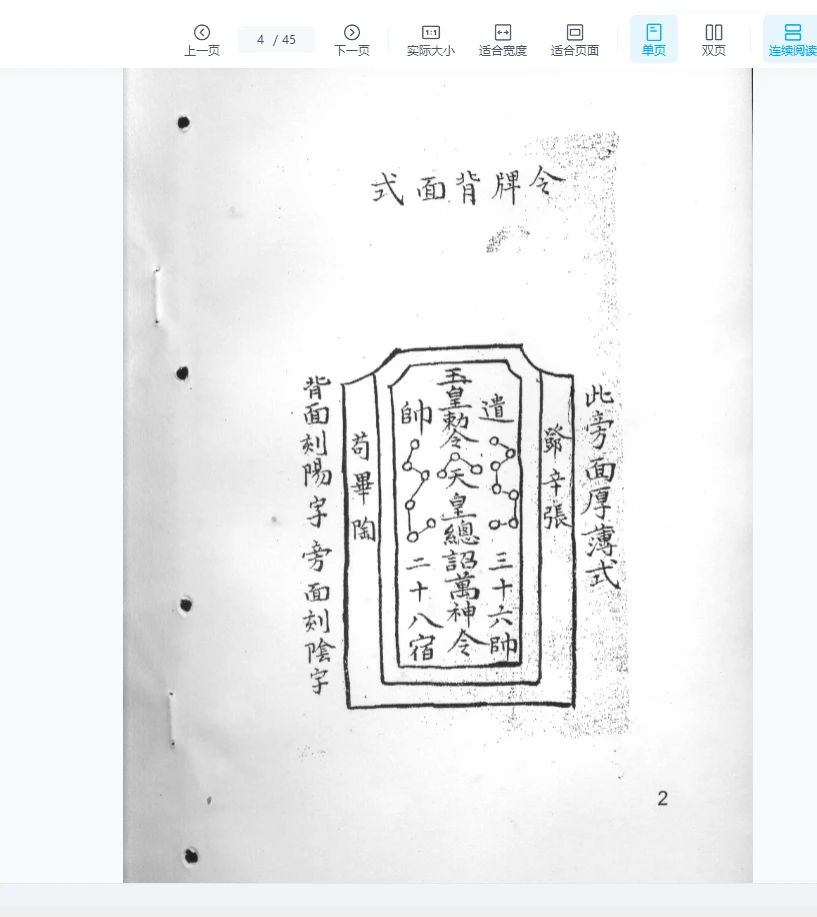 上一页
4 / 45
下一页
实际大小
适合宽度
适合页面
单页
双页
连续阅读
令牌背面式
此旁面厚薄式
鄧辛張
遣
三十六帥
玉皇勅令
天皇總詔萬神令
帥
二十八宿
苟畢陶
背面刻陽字旁面刻陰字
2